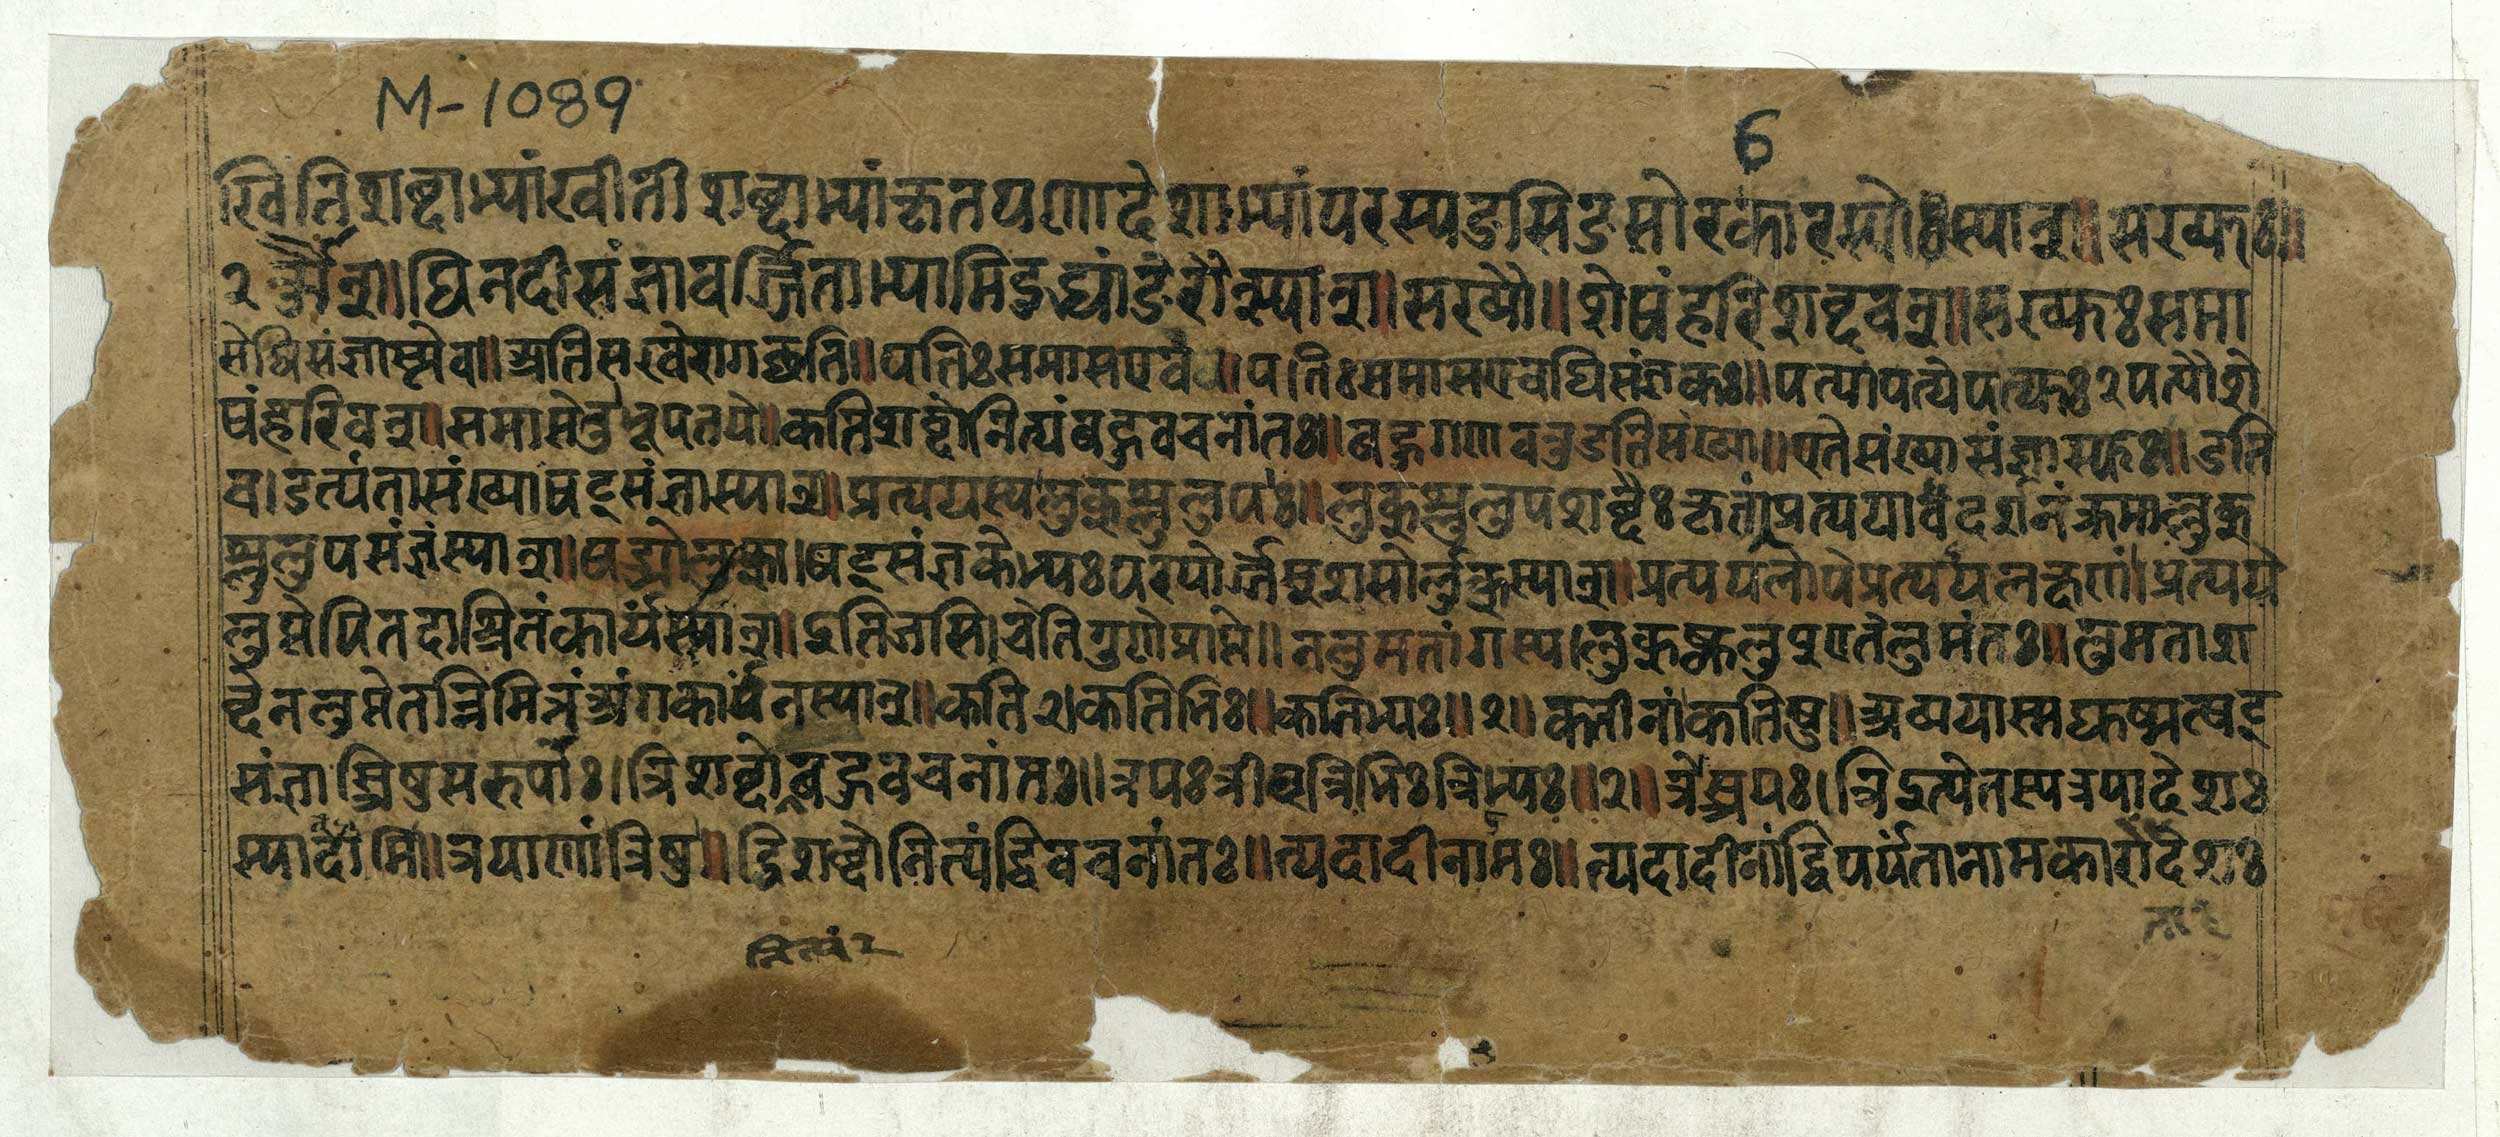 M-1089
6
खितिशब्दाभ्यांखीतीशब्दाभ्यांकृतयणादेशाभ्यांपरस्यङसिङसोरकारस्योःस्यात्॥सख्युः॥
२औत्॥घिनदीसंज्ञावर्ज्जिताभ्यामिदुद्भ्यांङेरौत्स्यात्॥सख्यौ॥शेषंहरिशब्दवत्॥सख्युःसमा
सेघिसंज्ञास्त्येव॥अतिसखेरागच्छति॥पतिःसमासएव॥पतिःसमासएवघिसंज्ञकः॥पत्यापत्येपत्युः२पत्यौशे
षंहरिवत्॥समासेतुभूपतये॥कतिशब्दोनित्यंबहुवचनांतः॥बहुगणवतुडतिसंख्या॥एतेसंख्यासंज्ञास्युः॥डति
च।डत्यंतासंख्याषट्संज्ञास्यात्॥प्रत्ययस्यलुक्श्लुलुपः॥लुक्श्लुलुपशब्दैःकृतंप्रत्ययादर्शनंक्रमाल्लुक्
श्लुलुपसंज्ञंस्यात्॥षड्भ्योलुक्॥षट्संज्ञकेभ्यःपरयोर्ज्जश्शसोर्लुक्स्यात्॥प्रत्ययलोपेप्रत्ययलक्षणं॥प्रत्यये
लुप्तेपितदाश्रितंकार्यंस्यात्॥इतिजसिचेतिगुणेप्राप्ते॥नलुमतांगस्य।लुक्श्लुलुप्एतेलुमंतः॥लुमताश
ब्देनलुप्तेतन्निमित्तंअंगकार्यंनस्यात्॥कति२।कतिभिः॥कतिभ्यः॥२॥कतीनांकतिषु॥अव्ययास्मद्युष्मत्षट्
संज्ञास्त्रिषुसरूपाः।त्रिशब्दोबहुवचनांतः॥त्रयःत्रीन्त्रिभिःत्रिभ्यः॥२॥त्रेस्त्रयः।त्रिइत्येतस्यत्रयादेशः
स्यादामि॥त्रयाणांत्रिषु॥द्विशब्दोनित्यंद्विवचनांतः॥त्यदादीनामः॥त्यदादीनांद्विपर्यंतानामकारादेशः
नित्यं२